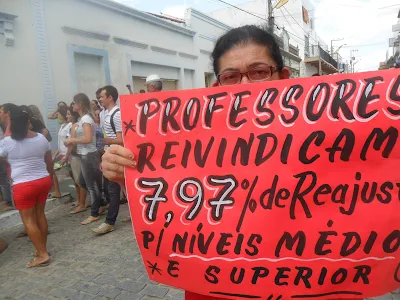 * PROFESSORES
REIVINDICAM
7,97% de Reajust
P/ NÍVEIS MÉDIO
* E SUPERIOR (